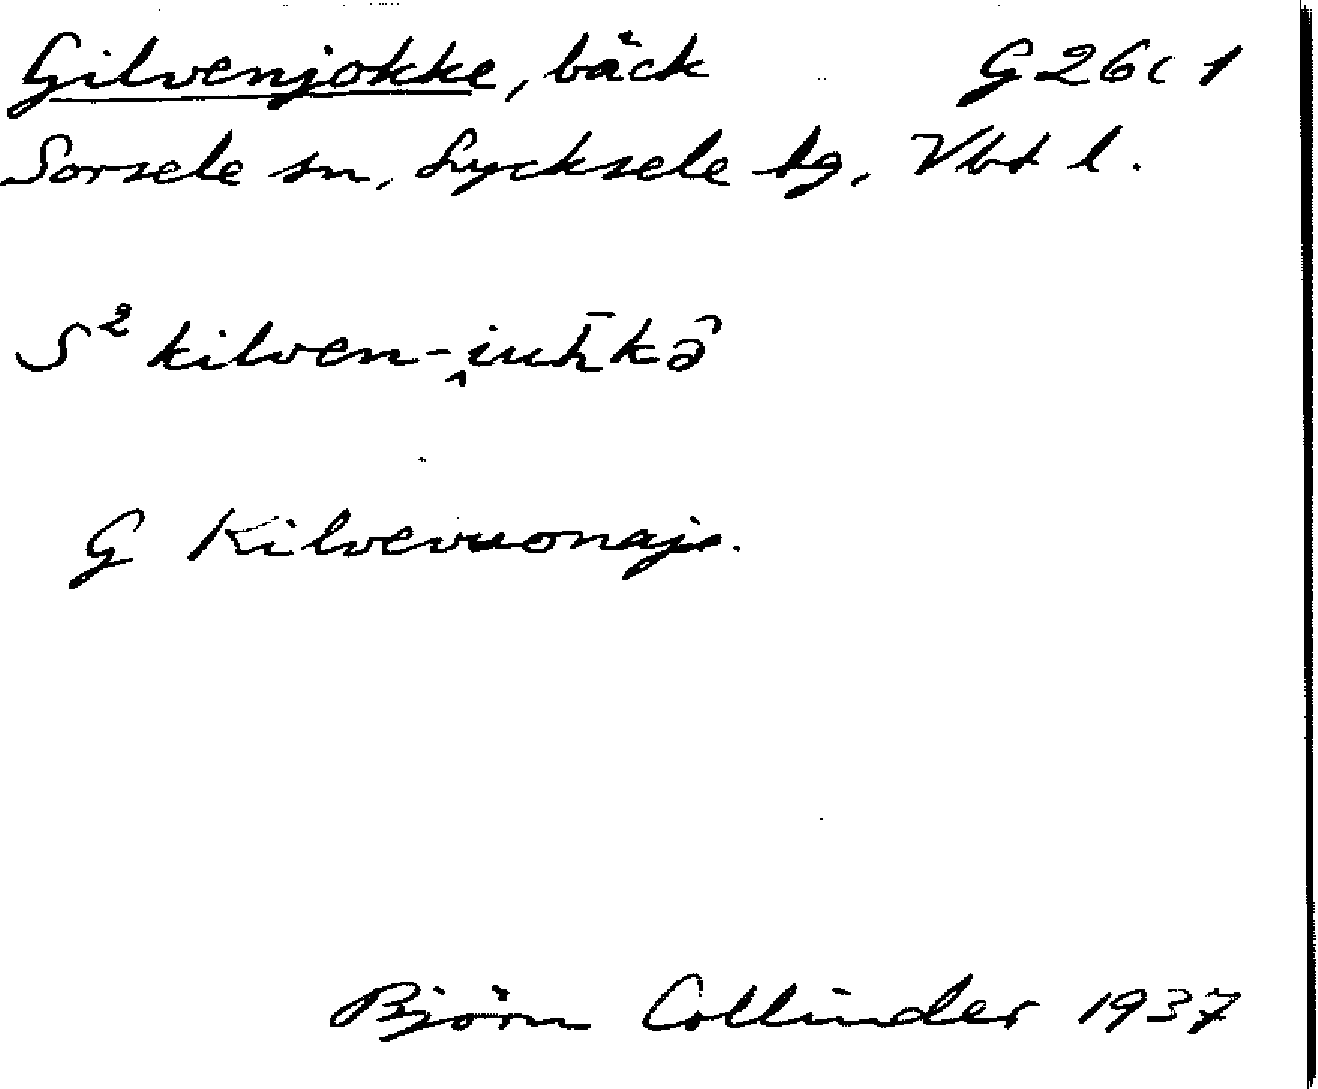 Gilvenjokke, bäck G 26c 1
Sorsele sn, Lycksele tg, Vbt l.
S² kilven-i̭uh̄kə̂
G Kilvevuonajs.
Björn Collinder 1937